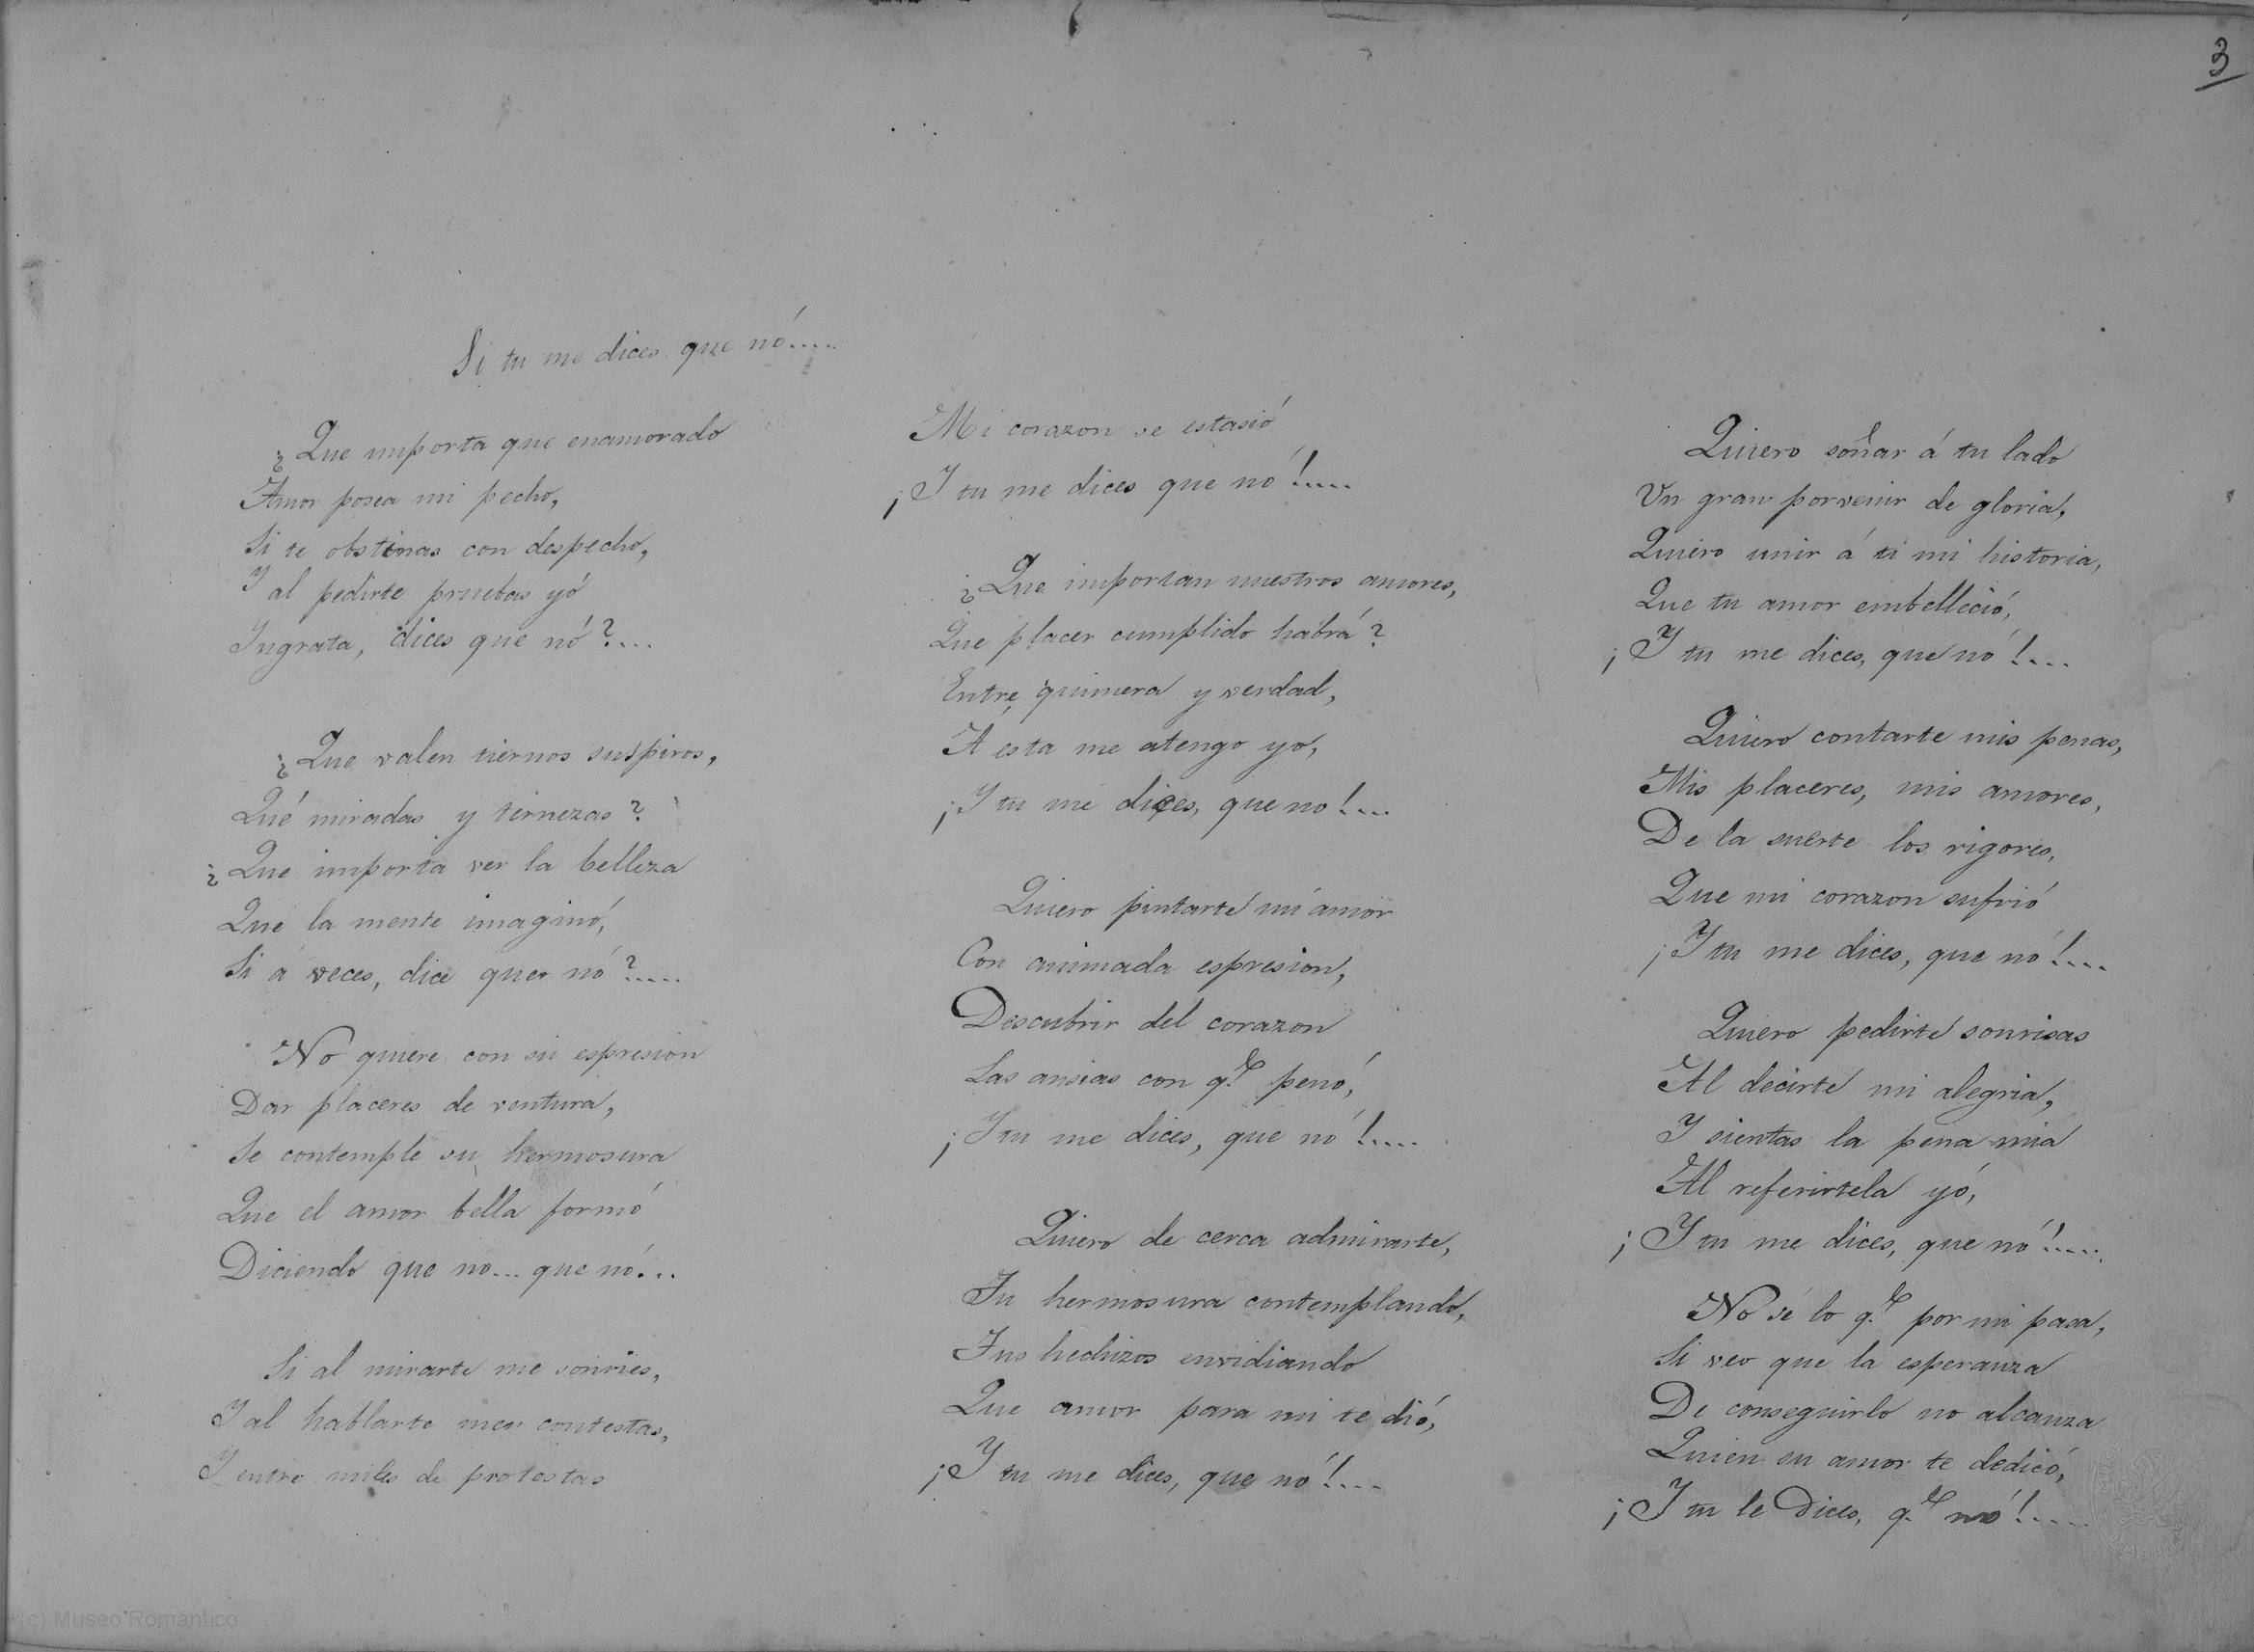 3
Si tu me dices que nó.....
¿Que importa que enamorado
Amor posea mi pecho,
Si te obstinas con despecho,
Y al pedirte pruebas yó
Ingrata, dices que nó?....
¿Que valen tiernos suspiros,
Qué miradas y ternezas?
¿Que importa ver la belleza
Que la mente imaginó,
Si á veces, dice que nó?.....
No quiere con su espresion
Dar placeres de ventura,
Se contemple su hermosura
Que el amor bella formó
Diciendo que no... que nó...
Si al mirarte me sonries,
Y al hablarte me contestas,
Y entre miles de protestas
Mi corazon se estasió
¡Y tu me dices que nó!....
¿Que importan nuestros amores,
Que placer cumplido habrá?
Entre quimera y verdad,
A esta me atengo yo,
¡Y tu me dices, que no!...
Quiero pintarte mi amor
Con animada espresion,
Descubrir del corazon
Las ansias con q.e penó,
¡Y tu me dices, que nó!....
Quiero de cerca admirarte,
Tu hermosura contemplando,
Tus hechizos envidiando
Que amor para mi te dió,
¡Y tu me dices, que nó!....
Quiero soñar á tu lado
Un gran porvenir de gloria,
Quiero unir á ti mi historia,
Que tu amor embelleció,
¡Y tu me dices, que nó!....
Quiero contarte mis penas,
Mis placeres, mis amores,
De la suerte los rigores,
Que mi corazon sufrió
¡Y tu me dices, que nó!....
Quiero pedirte sonrisas
Al decirte mi alegria,
Y sientas la pena mia
Al referirtela yó,
¡Y tu me dices, que nó!.....
No sé lo q.e por mi pasa,
Si veo que la esperanza
De conseguirlo no alcanza
Quien su amor te dedicó,
¡Y tu le dices, q.e nó!.....
(c) Museo Romántico